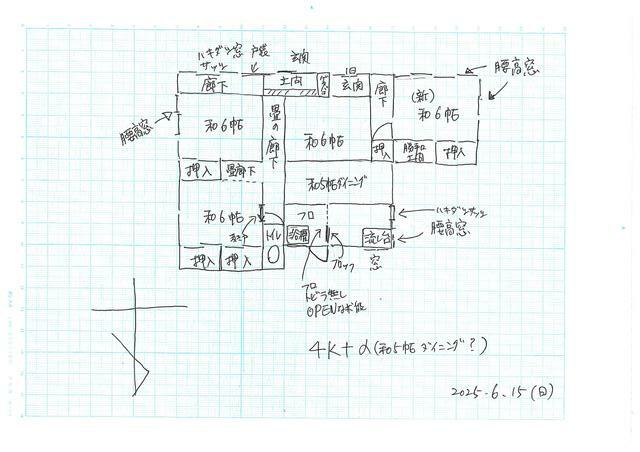 ハキダシ窓 戸袋 玄関
サッシ
廊下 土間 旧
玄関 廊下 (新)
和6帖
腰高窓
腰高窓
和6帖 畳の廊下 和6帖
押入 勝手口
土間 押入
押入 畳廊下 和5帖ダイニング
和6帖 フロ ハキダシサッシ
トイレ 流し台 腰高窓
押入 押入 窓
フロ
トビラ無し
OPENな状態
4K+α(和5帖ダイニング?)
2025.6.15(日)